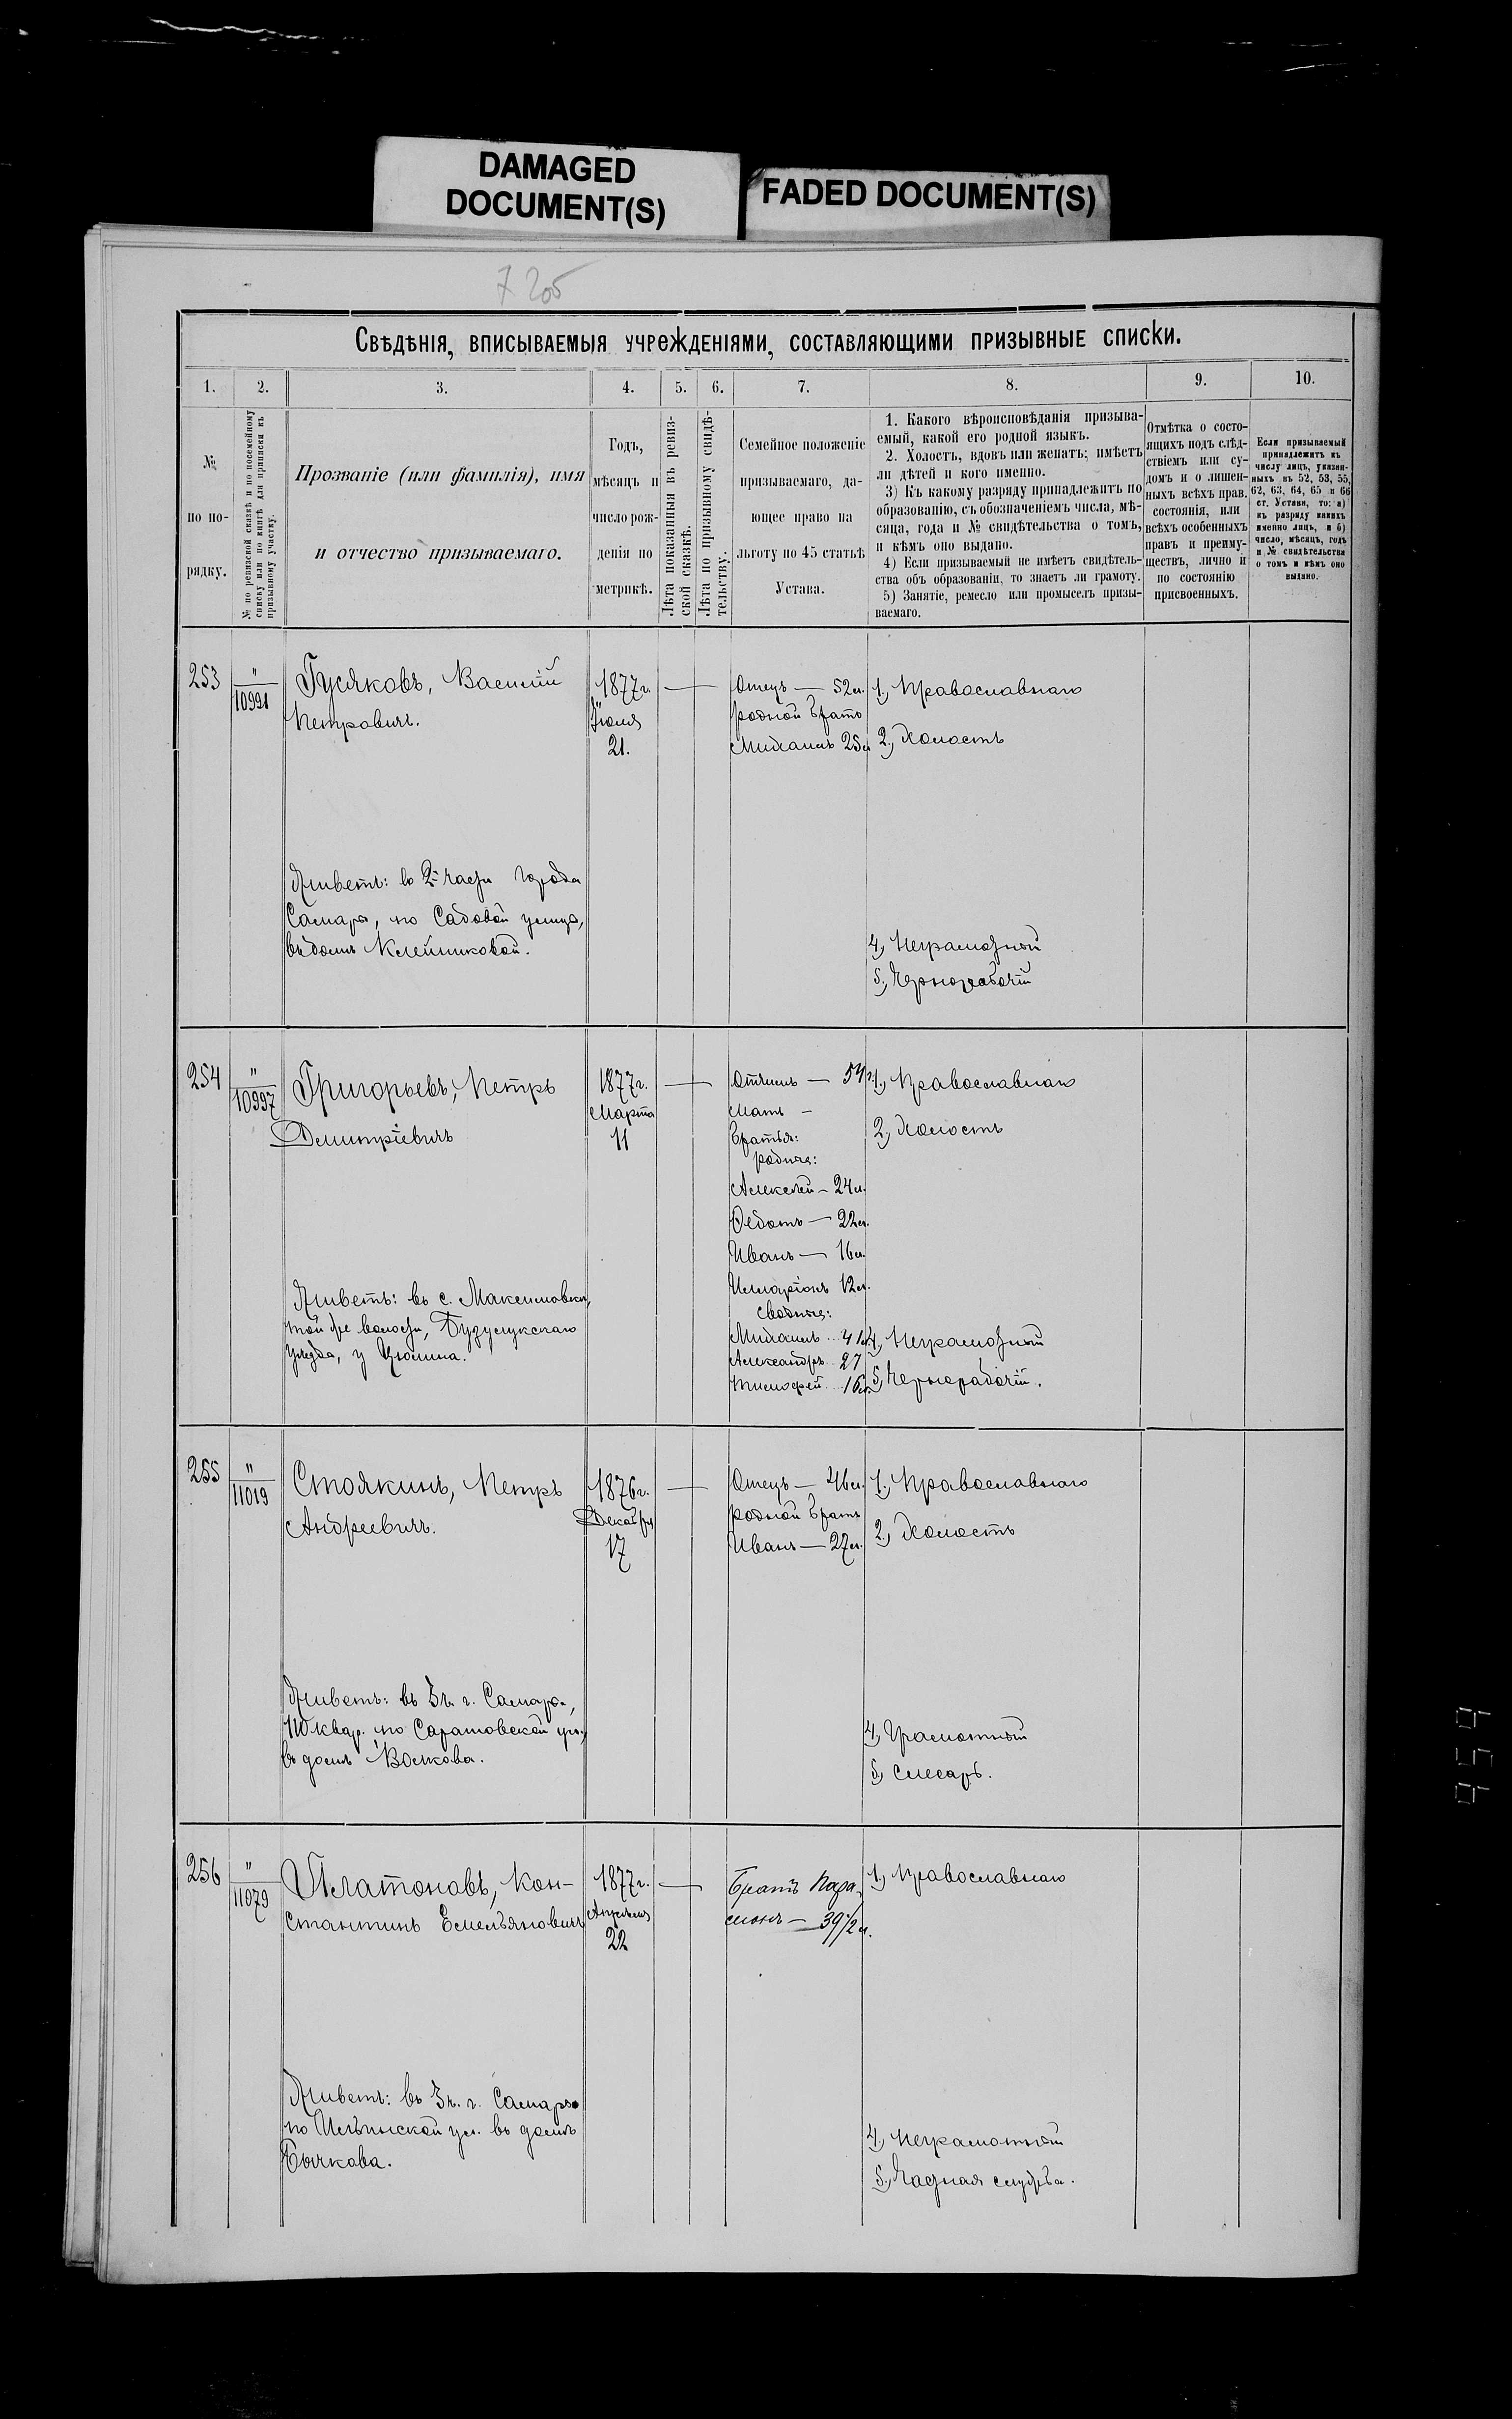 DAMAGED
DOCUMENT(S)
FADED DOCUMENT(S)
7 205
Свѣдѣнія, вписываемыя учрежденіями, составляющими призывные списки.
1. 2. 3. 4. 5. 6. 7. 8. 9. 10.
№
по по-
рядку.
№ по ревизской сказкѣ и по посемейному
списку или по книгѣ для приписки къ
призывному участку.
Прозваніе (или фамилія), имя
и отчество призываемаго.
Годъ,
мѣсяцъ и
число рож-
денія по
метрикѣ.
Лѣта показанныя въ ревиз-
ской сказкѣ.
Лѣта по призывному свидѣ-
тельству.
Семейное положеніе
призываемаго, да-
ющее право на
льготу по 45 статьѣ
Устава.
1. Какого вѣроисповѣданія призыва-
емый, какой его родной языкъ.
2. Холостъ, вдовъ или женатъ; имѣетъ
ли дѣтей и кого именно.
3) Къ какому разряду принадлежитъ по
образованію, съ обозначеніемъ числа, мѣ-
сяца, года и № свидѣтельства о томъ,
и кѣмъ оно выдано.
4) Если призываемый не имѣетъ свидѣтель-
ства объ образованіи, то знаетъ ли грамоту.
5) Занятіе, ремесло или промыселъ призы-
ваемаго.
Отмѣтка о состо-
ящихъ подъ слѣд-
ствіемъ или су-
домъ и о лишен-
ныхъ всѣхъ правъ
состоянія, или
всѣхъ особенныхъ
правъ и преиму-
ществъ, лично и
по состоянію
присвоенныхъ.
Если призываемый
принадлежитъ къ
числу лицъ, указан-
ныхъ въ 52, 53, 55,
62, 63, 64, 65 и 66
ст. Устава, то: а)
къ разряду какихъ
именно лицъ, и б)
число, мѣсяцъ, годъ
и № свидѣтельства
о томъ и кѣмъ оно
выдано.
253
"
10991
Гусяковъ, Василій
Петровичъ.
Живетъ: во 2й части города
Самары, по Садовой улицѣ,
въ домѣ Клейниковой.
1877г.
Іюля
21.
Отецъ — 52л.
родной братъ
Михаилъ 25л
1., Православнаго
2., Холостъ
4., Неграмотный
5., Чернорабочій
254
"
10997
Григорьевъ, Петръ
Димитріевичъ
Живетъ: въ с. Максимовкѣ,
той же волости, Бузулукскаго
уѣзда, у
1877г.
Марта
11
Отчимъ — 54
Мать —
братья:
родные:
Алексѣй — 24л.
Федотъ — 22л.
Иванъ — 16л.
Иларіонъ 12л.
сводные:
Михаилъ .. 41
Александръ .. 27
Тимофей ... 16л.
1., Православнаго
2., Холостъ
4., Неграмотный
5., Чернорабочій.
255
"
11019
Стоякинъ, Петръ
Андреевичъ.
Живетъ: въ 3ч. г. Самары,
110 квар. по Саратовской ул.,
въ домѣ Волкова.
1876г.
Декабря
17
Отецъ — 46л.
родной братъ
Иванъ — 27л.
1., Православнаго
2., Холостъ
4., Грамотный
5., Слесарь.
256
"
11079
Платоновъ, Кон-
стантинъ Емельяновичъ
Живетъ: въ 3ч. г. Самары
по Ильинской ул. въ домѣ
Бычкова.
1877г.
Апрѣля
22
Братъ Пара-
монъ — 39 1/2 л.
1., Православнаго
4., Неграмотный
5., Частная служба.
959